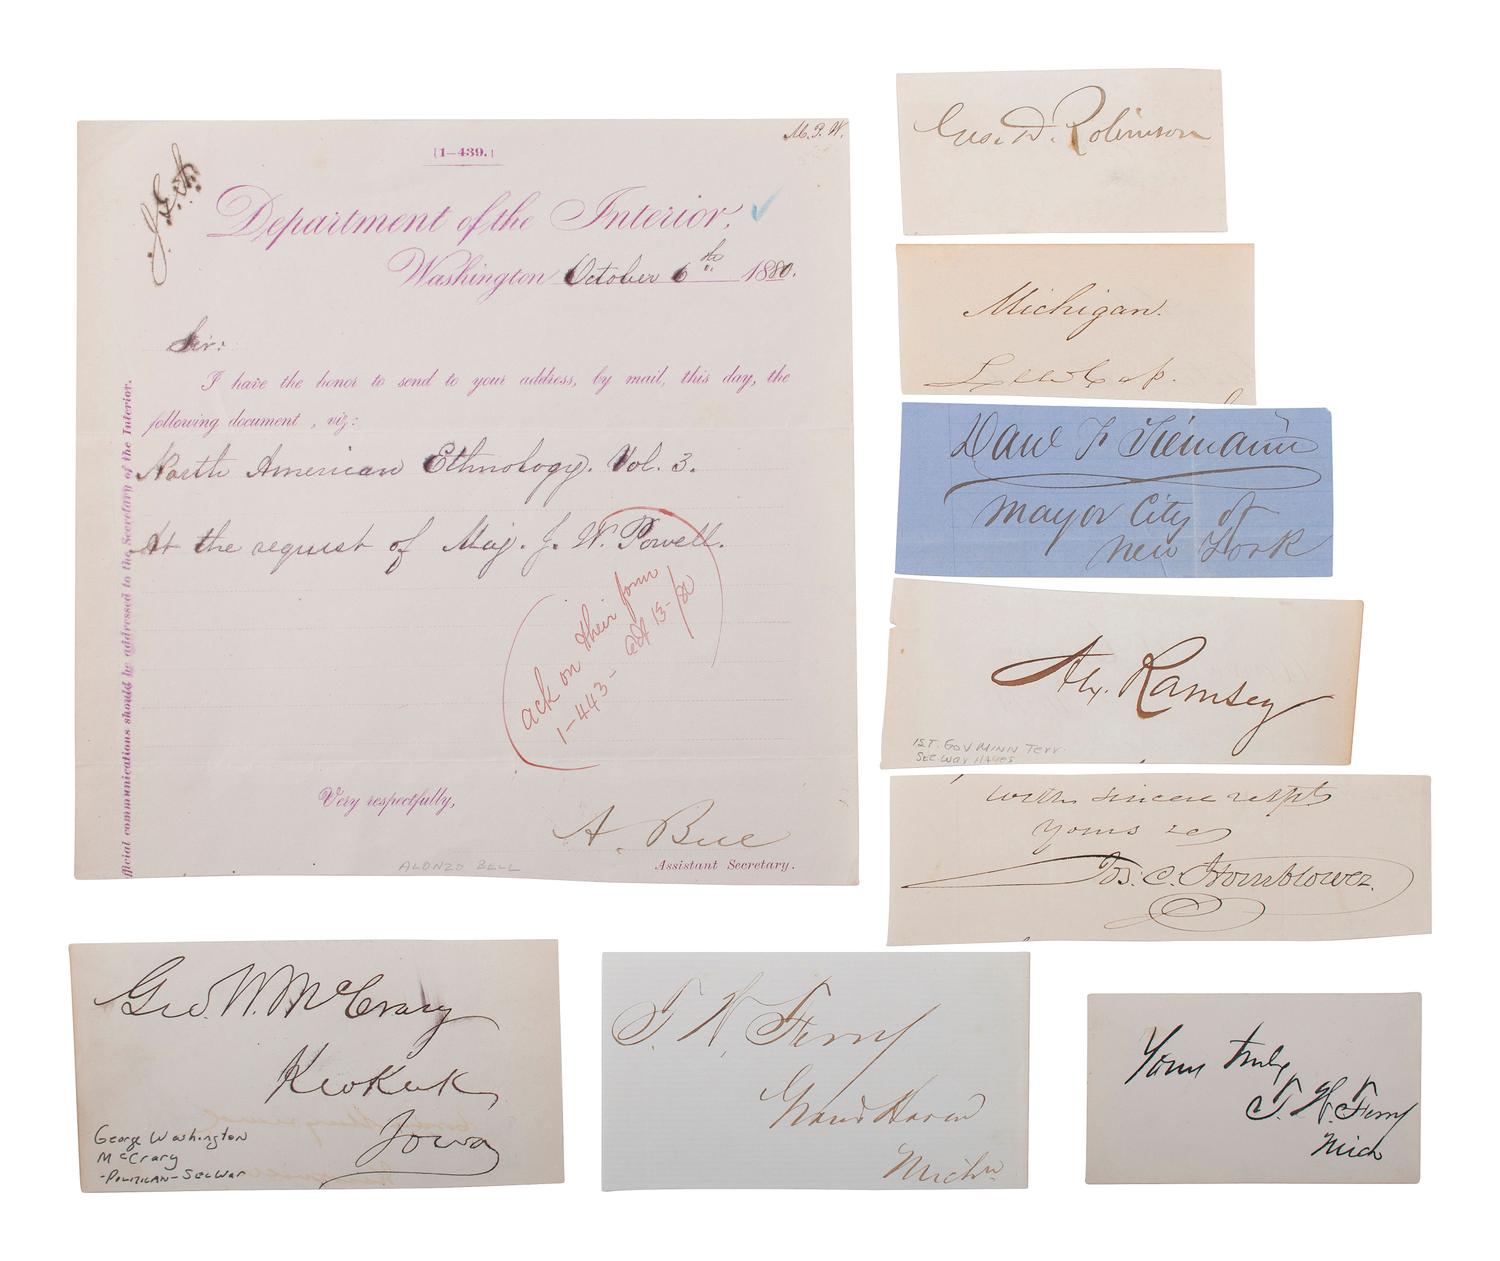 M. P. W.
[1–439.]
Department of the Interior,
Washington October 6th 1880.
Sir:
I have the honor to send to your address, by mail, this day, the
following document , viz:
North American Ethnology. Vol. 3.
At the request of Maj. J. W. Powell.
ack on their form
1–443– Oct 13–/80
Very respectfully,
A. Bell
Assistant Secretary.
ALONZO BELL
fficial communications should be addressed to the Secretary of the Interior.
Geo. D. Robinson
Michigan.
Lew Cass
Danl F Tiemann
Mayor City of
New York
Alx. Ramsey
1ST. GOV MINN Terr.
SEC WAR HAYES
with sincere respts
yours &c
Jos. C. Hornblower.
Geo. W. McCrary
Keokuk
Iowa
George Washington
McCrary
-POLITICIAN-SEC WAR
T. W. Ferry
Grand Haven
Michn
Yours truly
T. W. Ferry
Mich